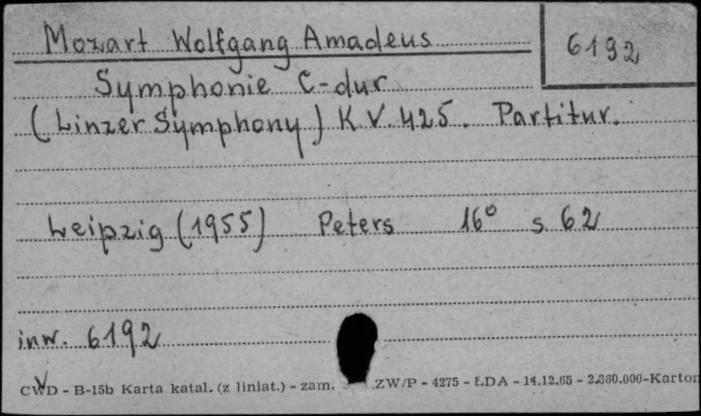 Mozart Wolfgang Amadeus
6192
Symphonie C-dur
(Linzer Symphony) K.V. 425. Partitur.
Leipzig (1955) Peters 16° s. 62
inw. 6192
CWD - B-15b Karta katal. (z liniat.) - zam. ZW/P - 4275 - ŁDA - 14.12.65 - 2.360.000-Karton